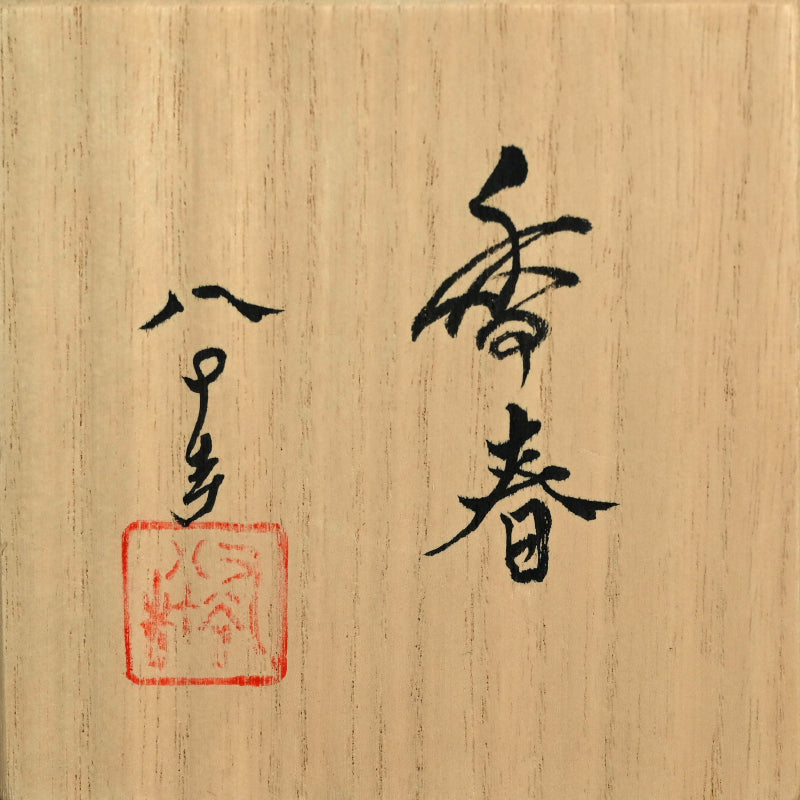 香春
八十吉